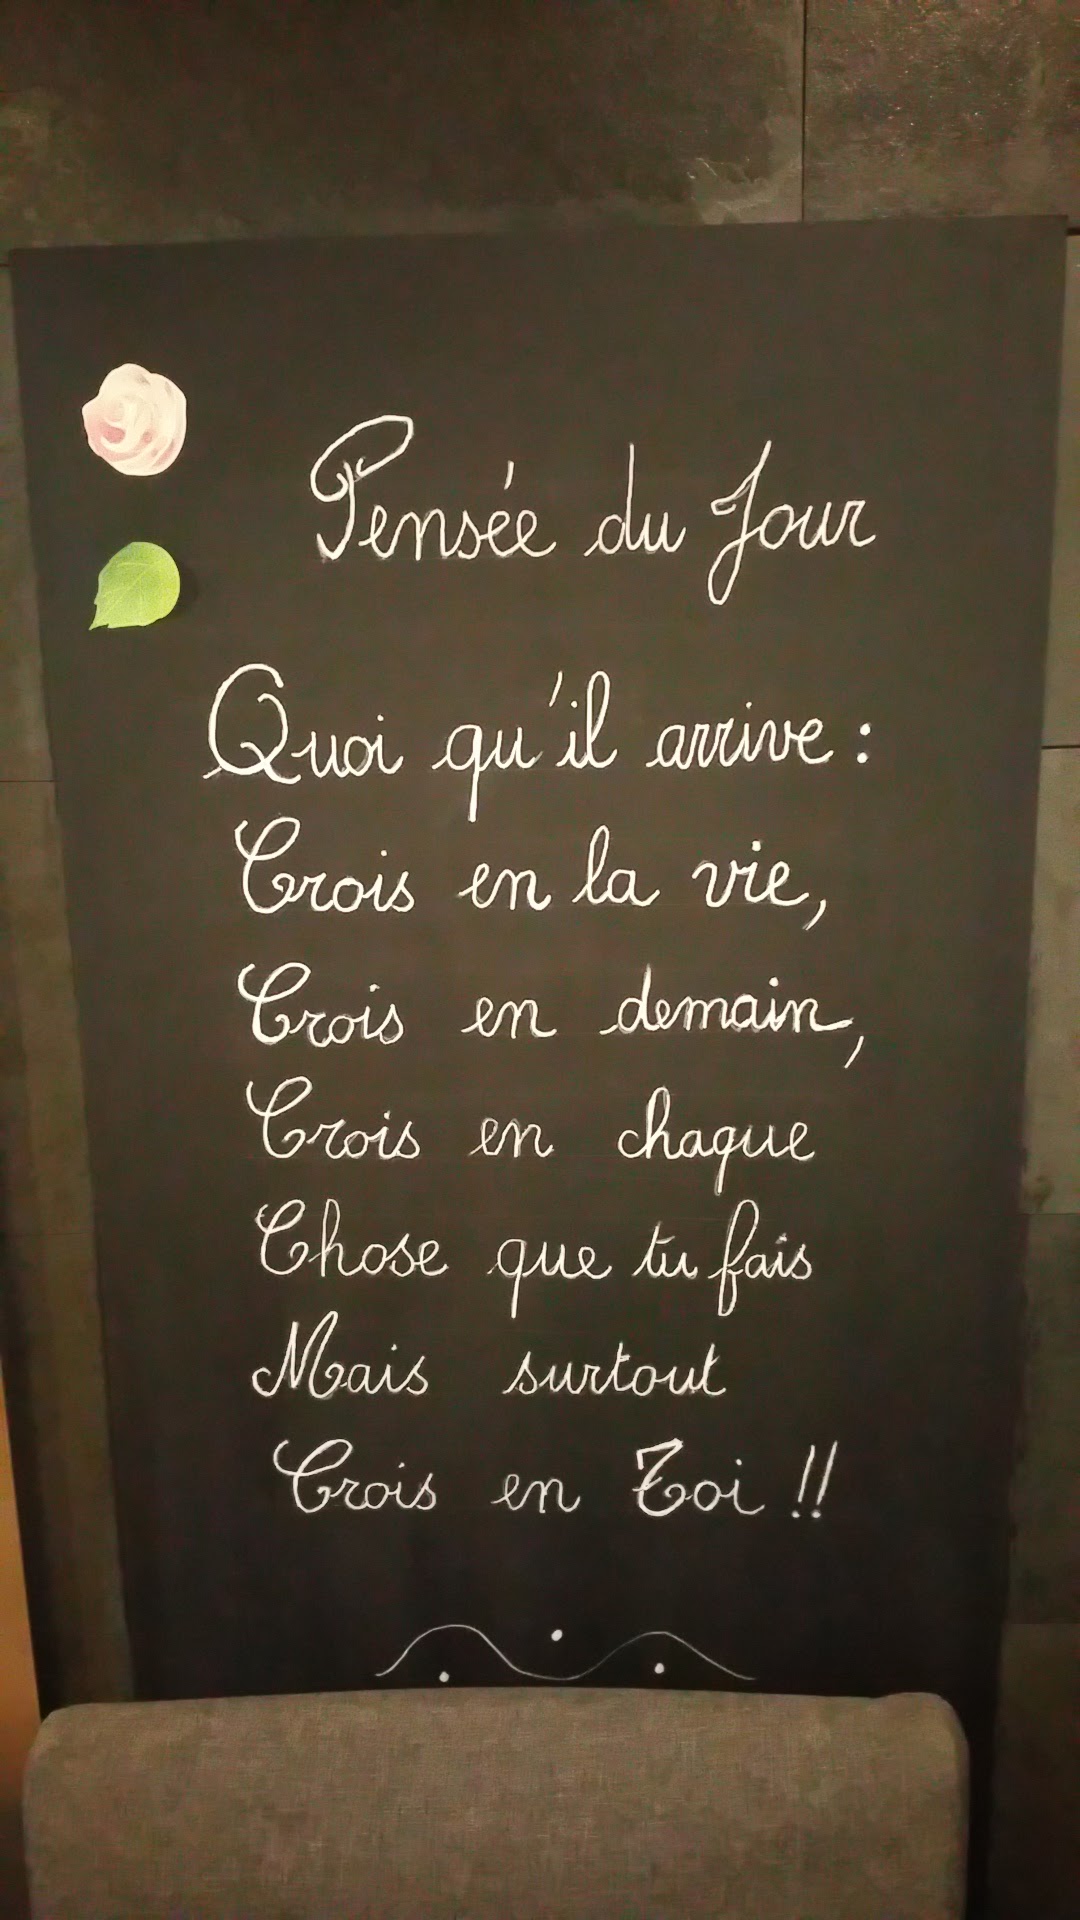 Pensée du Jour
Quoi qu'il arrive :
Crois en la vie,
Crois en demain,
Crois en chaque
Chose que tu fais
Mais surtout
Crois en Toi !!